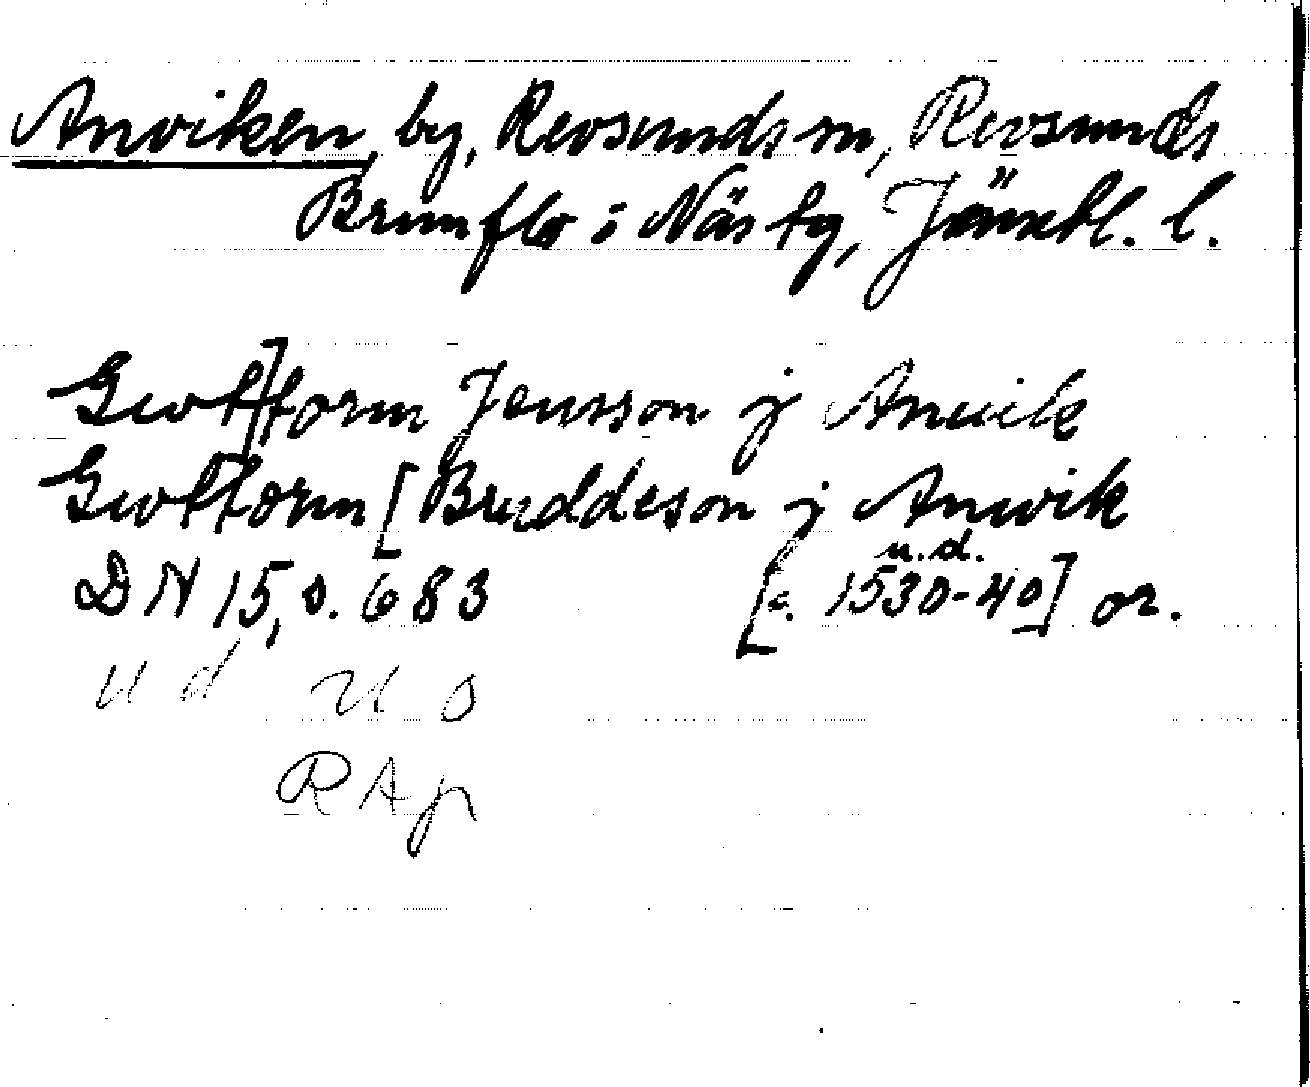 Anviken, by, Revsunds sn, Revsunds
Brunflo o Näs tg, Jämtl. l.
Gwt]torm Jensson j Anuik
Gwttorm [Bruddeson j Anwik
DN 15, s. 683 [c. 1530-40] or.
u.d.
u d u o
RAp